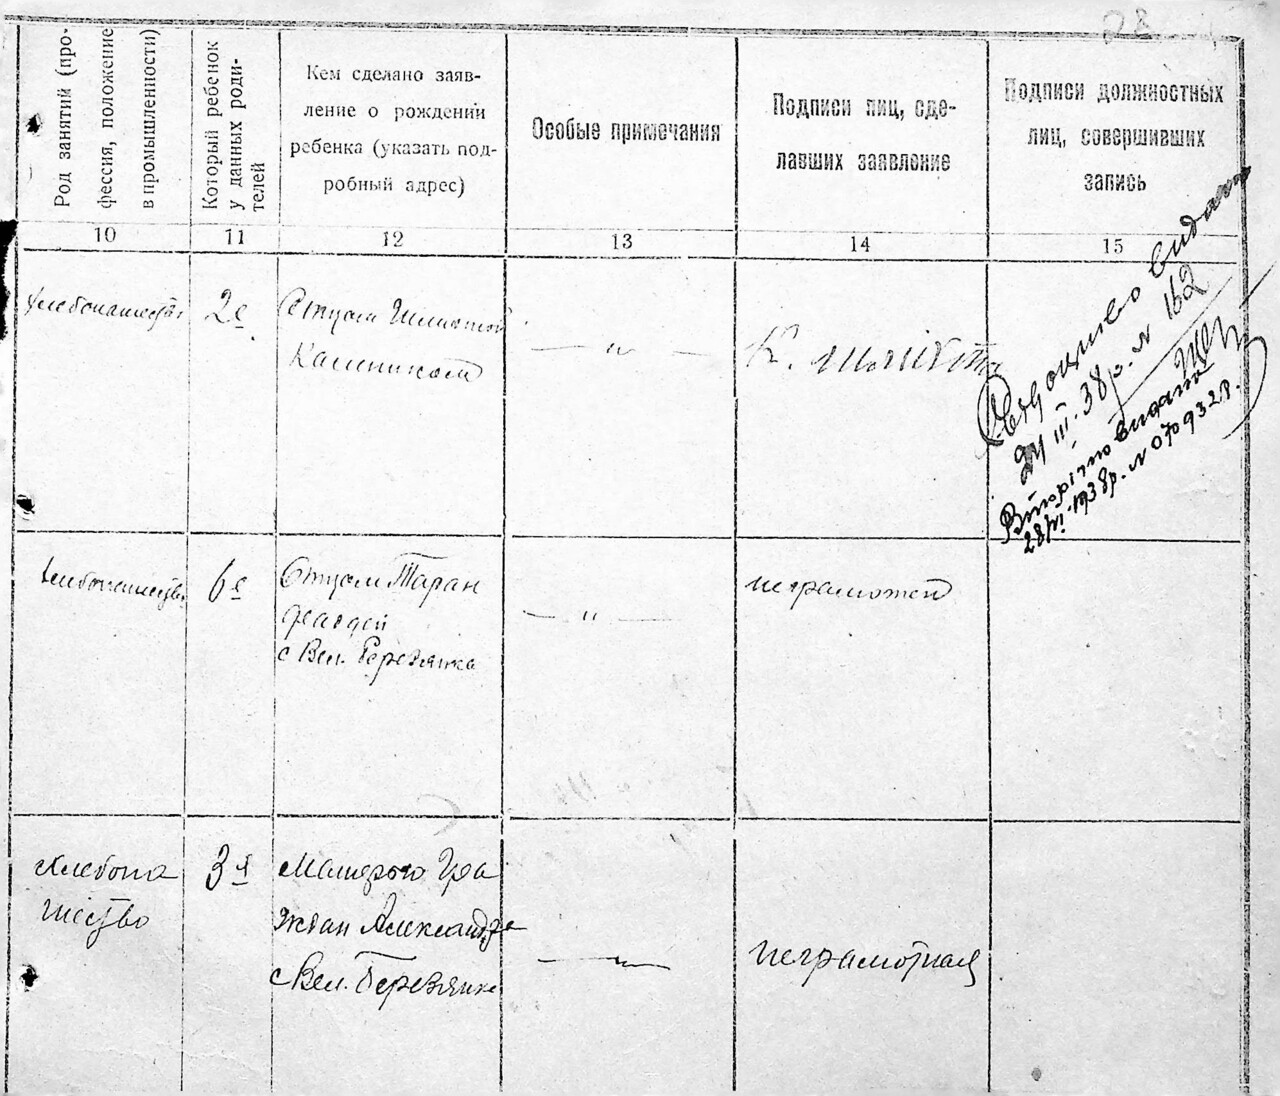 28
Род занятий (про-
фессия, положение
в промышленности)
Который ребенок
у данных роди-
телей
Кем сделано заяв-
ление о рождении
ребенка (указать под-
робный адрес)
Особые примечания
Подписи лиц, сде-
лавших заявление
Подписи должностных
лиц, совершивших
запись
10
11
12
13
14
15
хлебопашество
2й
Отцом
— " —
К.
видано
24 III. 38р. № 162
Вторічно видано
28/VI-1938р. № 070932р.
хлебопашество
6й
Отцом Таран
с Вел. Березянка
— " —
неграмотен
хлебопа
шество
3й
Матерью Гра
ждан Александра
с Вел. Березянка
— " —
неграмотная